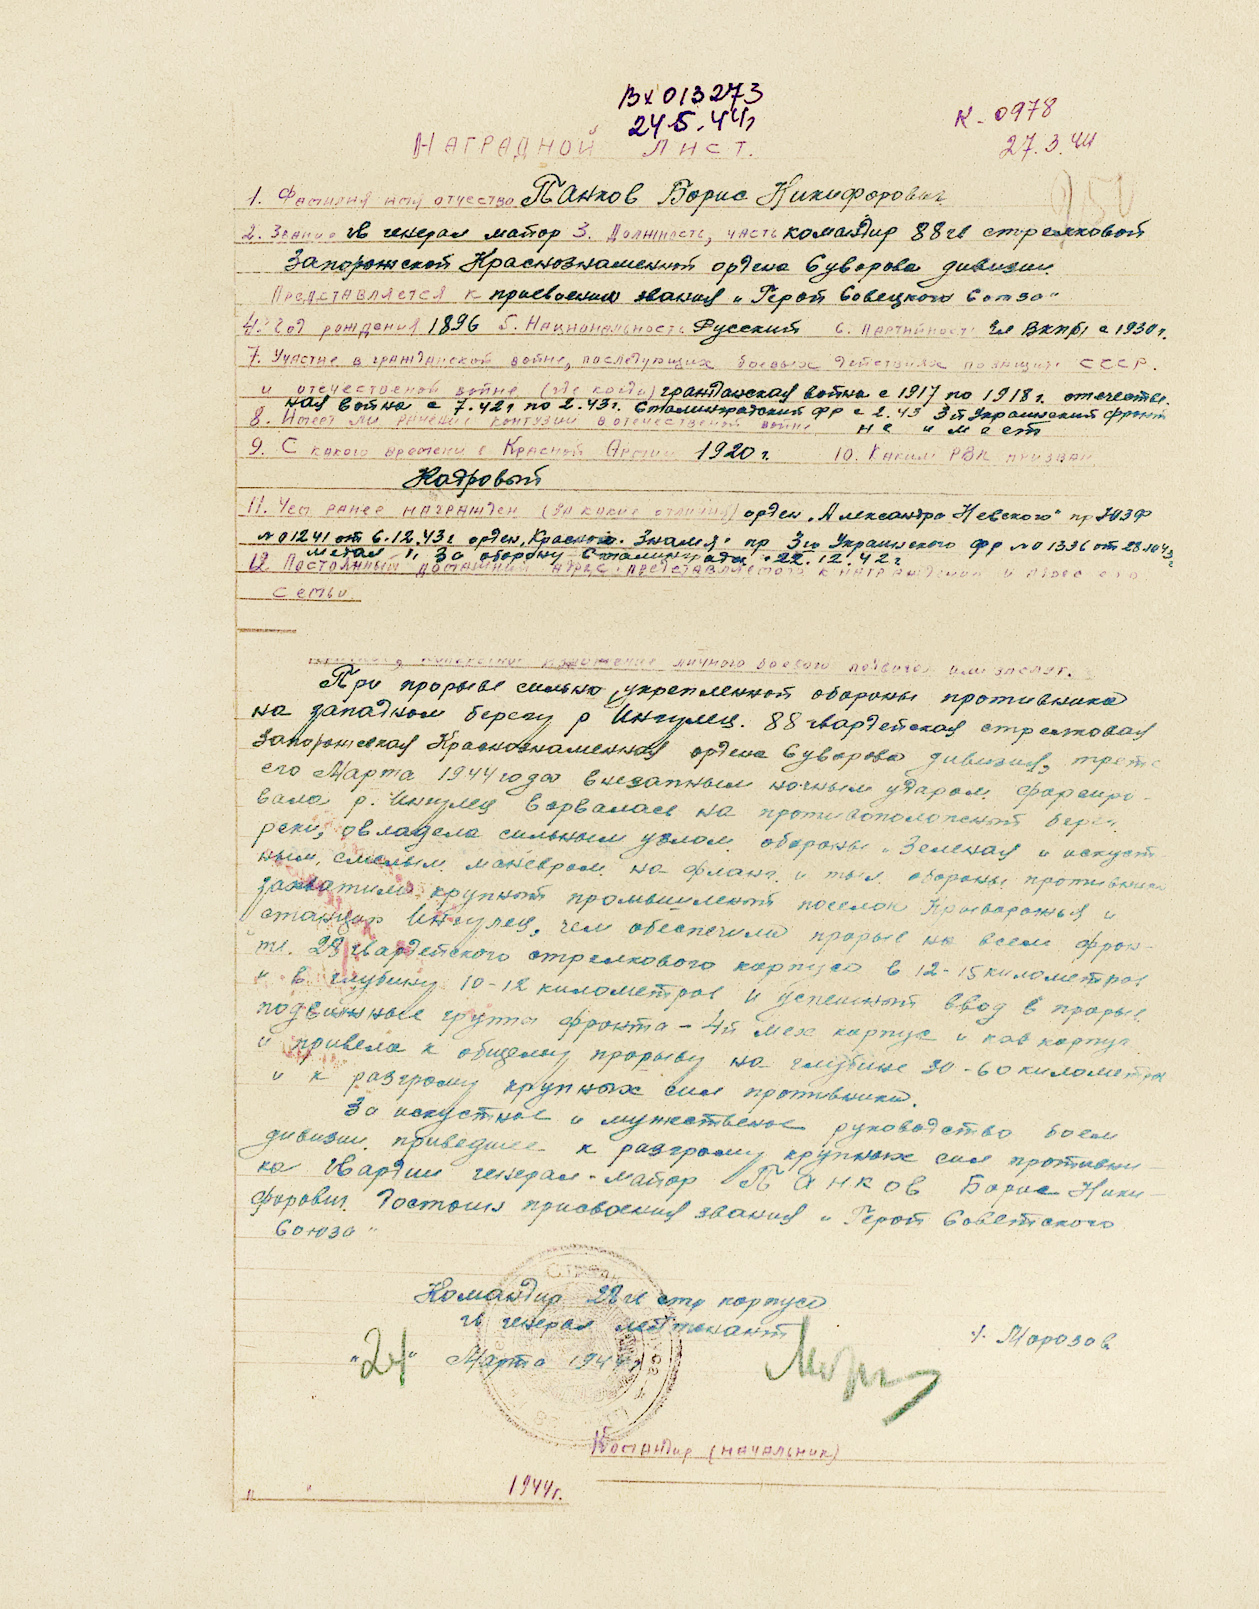 Вх 013273
24.5.44г
К-0978
27.3.44
250
НАГРАДНОЙ ЛИСТ.
1. Фамилия имя отчество Панков Борис Никифорович
2. Звание гв генерал майор 3. Должность, часть командир 88 гв стрелковой
Запорожской Краснознаменной ордена Суворова дивизии
Представляется к присвоению звания „Герой Совецкого Союза"
4. Год рождения 1896 5. Национальность Русский 6. Партийность Чл ВКП(б) с 1930 г.
7. Участие в гражданской войне, последующих боевых действиях по защите СССР.
и отечественной войне (где когда) гражданская война с 1917 по 1918 г. отечествен-
ная война с 7.42 г по 2.43 г. Сталинградский фр с 2.43 3й Украинский фронт
8. Имеет ли ранения контузии в отечественной войне не имеет
9. С какого времени в Красной Армии 1920 г. 10. Каким РВК призван
Кадровый
11. Чем ранее награжден (за какие отличия) орден „Александра Невского" пр ЮЗФ
№ 01241 от 6.12.43 г орден „Красного Знамя" пр 3го Украинского фр № 01336 от 28.10.43 г
медаль „За оборону Сталинграда" 22.12.42 г
12. Постоянный домашний адрес представляемого к награждению и адрес его
семьи
конкретное изложение личного боевого подвига или заслуг.
При прорыве сильно укрепленной обороны противника
на западном берегу р Ингулец. 88 гвардейская стрелковая
Запорожская Краснознаменная ордена Суворова дивизия, треть
его Марта 1944 года внезапным ночным ударом форсиро-
вала р. Ингулец ворвалась на противоположный берег
реки, овладела сильным узлом обороны „Зеленая и искуст
ным, смелым маневром на фланг и тыл обороны противника
захватила крупный промышленый поселок Криворожья и
станцию Ингулец, чем обеспечила прорыв на всем фрон-
те 28 гвардейского стрелкового корпуса в 12-15 километров
и в глубину 10-12 километров и успешный ввод в прорыв
подвижные группы фронта - 4й мех корпус и кав корпус
и привела к общему прорыву на глубине 30-60 километров
и к разгрому крупных сил противника.
За искустное и мужественое руководство боем
дивизии приведшее к разгрому крупных сил противни-
ка гвардии генерал-майор ПАНКОВ Борис Ники-
форович достоин присвоения звания „Герой Советского
Союза"
Командир 28 гв стр корпуса
гв генерал лейтенант
/. Морозов
„24" Марта 1944 г
Командир (начальник)
" " 1944г.